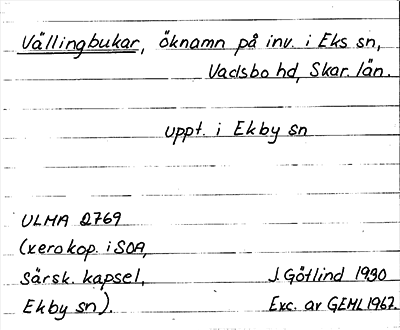 Vällingbukar, öknamn på inv. i Eks sn,
Vadsbo hd, Skar. län.
uppt. i Ekby sn
ULMA 2769
(xerokop. i SOA,
särsk. kapsel,
J. Götlind 1930
Ekby sn).
Exc. av GEML 1967.